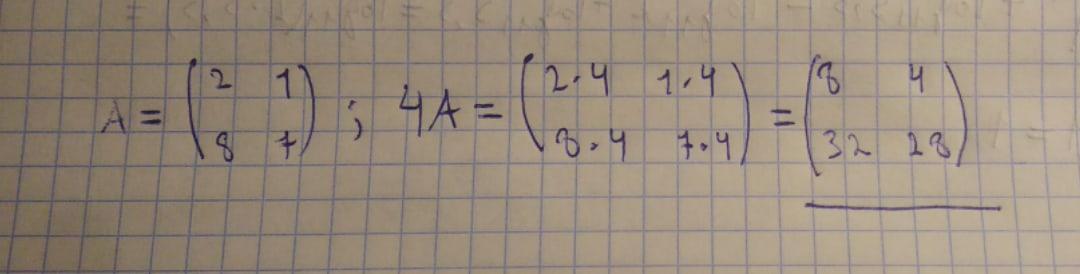 A = (2 1; 8 7); 4A = (2·4 1·4; 8·4 7·4) = (8 4; 32 28)